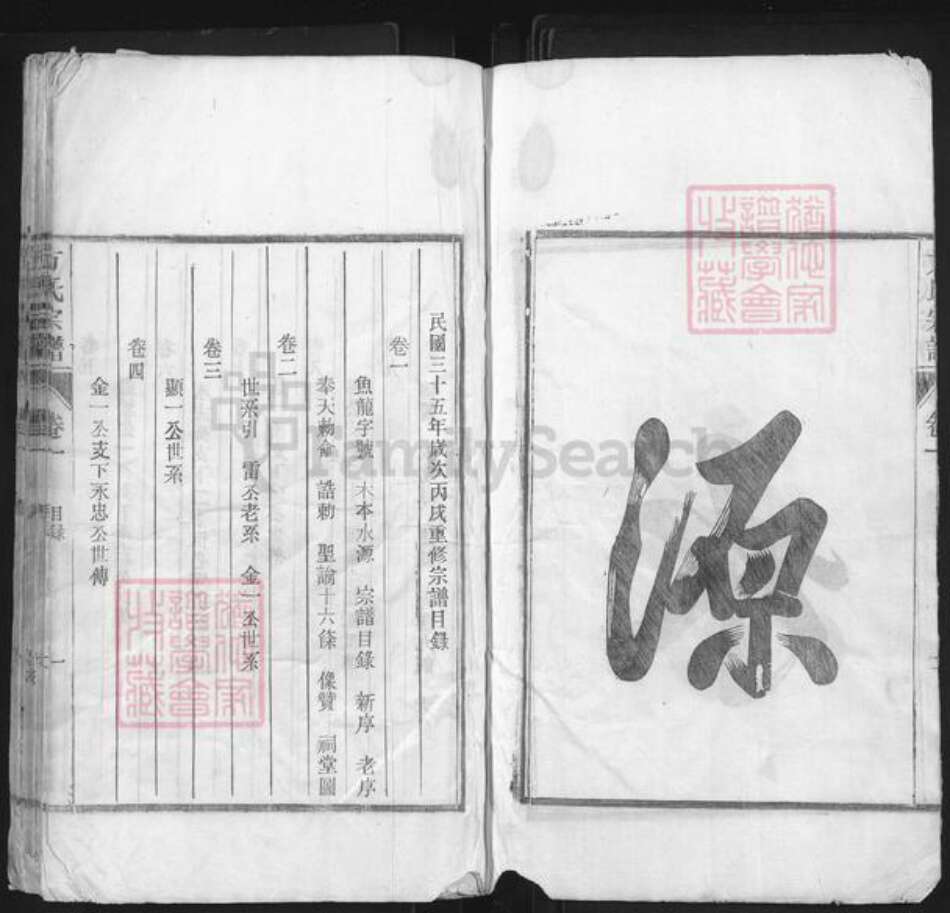 源
民國三十五年歲次丙戌重修宗譜目錄
卷一
魚龍字號 木本水源 宗譜目錄 新序 老序
奉天勅命 誥勅 聖諭十六條 像贊 祠堂圖
卷二
世系引 雷公老系 金一公世系
卷三
顯一公世系
卷四
金一公支下永忠公世傳
方氏宗譜 卷一 目錄 一
FamilySearch